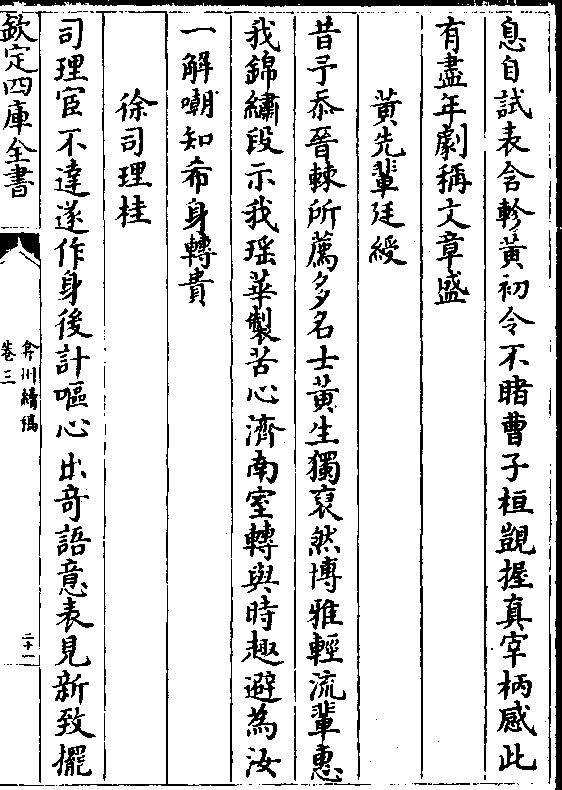 息自試表含軫黄初令不睹曹子桓覬握真宰柄感此
有盡年劇稱文章盛
黄先輩廷綬
昔予忝晉棘所薦多名士黄生獨裒然博雅輕流輩惠
我錦繡段示我瑶華製苦心濟南室轉與時趣避為汝
一解嘲知希身轉貴
徐司理桂
司理宦不達遂作身後計嘔心出奇語意表見新致擺
欽定四庫全書
弇州續稿
卷三
二十一